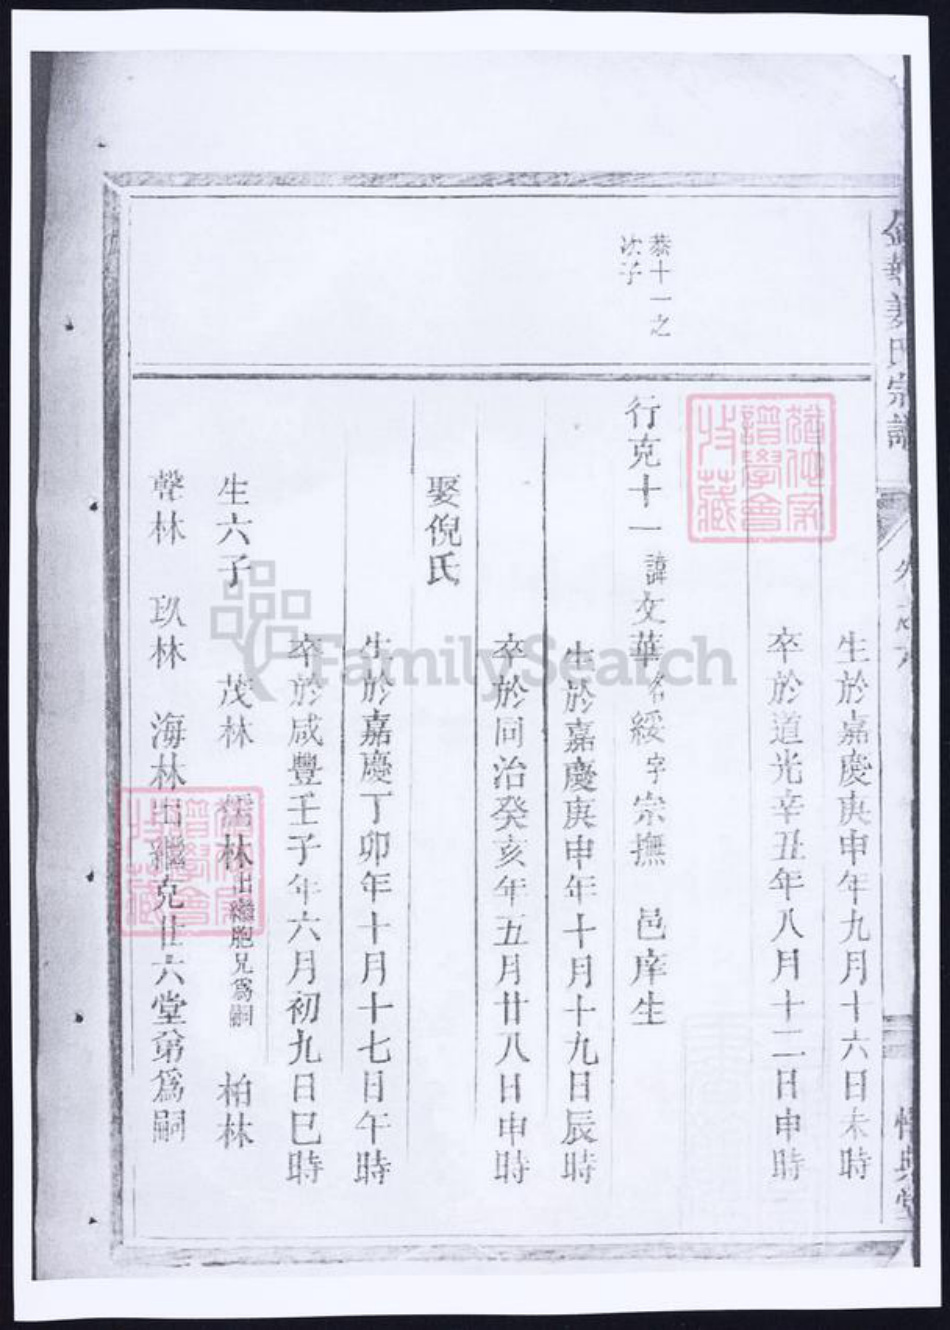 金華姜氏宗譜
生於嘉慶庚申年九月十六日未時
卒於道光辛丑年八月十二日申時
恭十一之
次子
行克十一 諱文華名綏字宗撫 邑庠生
生於嘉慶庚申年十月十九日辰時
卒於同治癸亥年五月廿八日申時
娶倪氏
生於嘉慶丁卯年十月十七日午時
卒於咸豐壬子年六月初九日巳時
生六子 茂林 儒林出繼胞兄為嗣 柏林
馨林 玖林 海林出繼克廿六堂弟為嗣
譜學會
收藏
FamilySearch